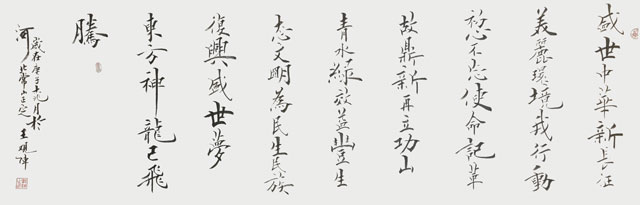 盛世中華新長征
美麗環境我行動
初心不忘使命記革
故鼎新再立功山
青水綠效益豐生
态文明為民生民族
復興盛世夢
東方神龍已飛
騰
歲在庚子九月於
河北常山正定王